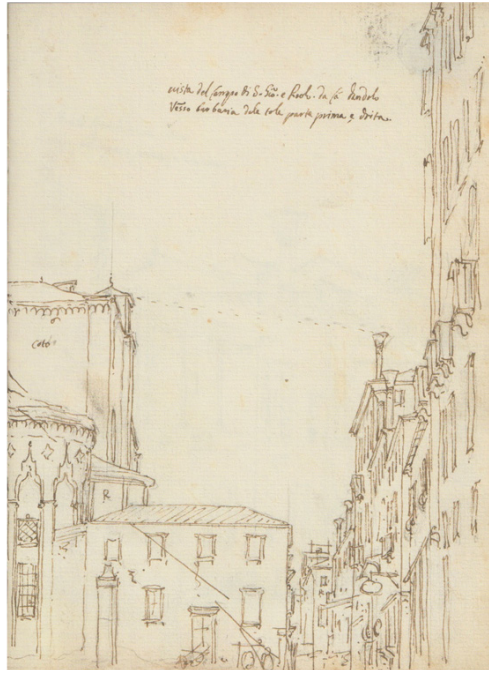 vista del Campo di S. Gio. e Paolo. da cà Dandolo
Verso barbaria dele tole parte prima e drita
Coto
R